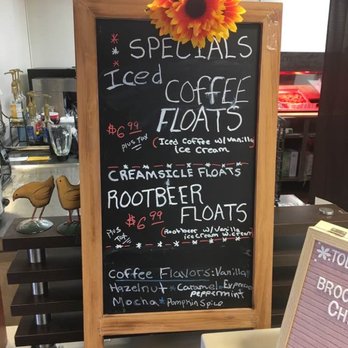 * SPECIALS
*
* Iced
COFFEE
FLOATS
$6.99
plus Tax
(Iced Coffee w/Vanilla
Ice Cream
CREAMSICLE FLOATS
ROOTBEER
FLOATS
$6.99
plus Tax
(Rootbeer w/Vanilla
icecream w.cream)
Coffee Flavors: Vanilla
Hazelnut * Caramel *
peppermint
Mocha * Pumpkin Spice
* TO
BRO
CH